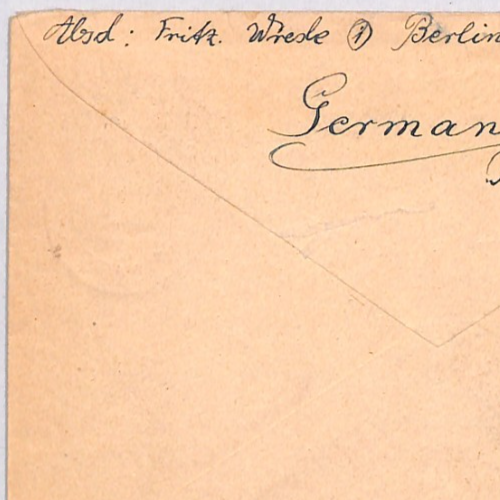 Absd: Fritz. Wreske ① Berlin
German